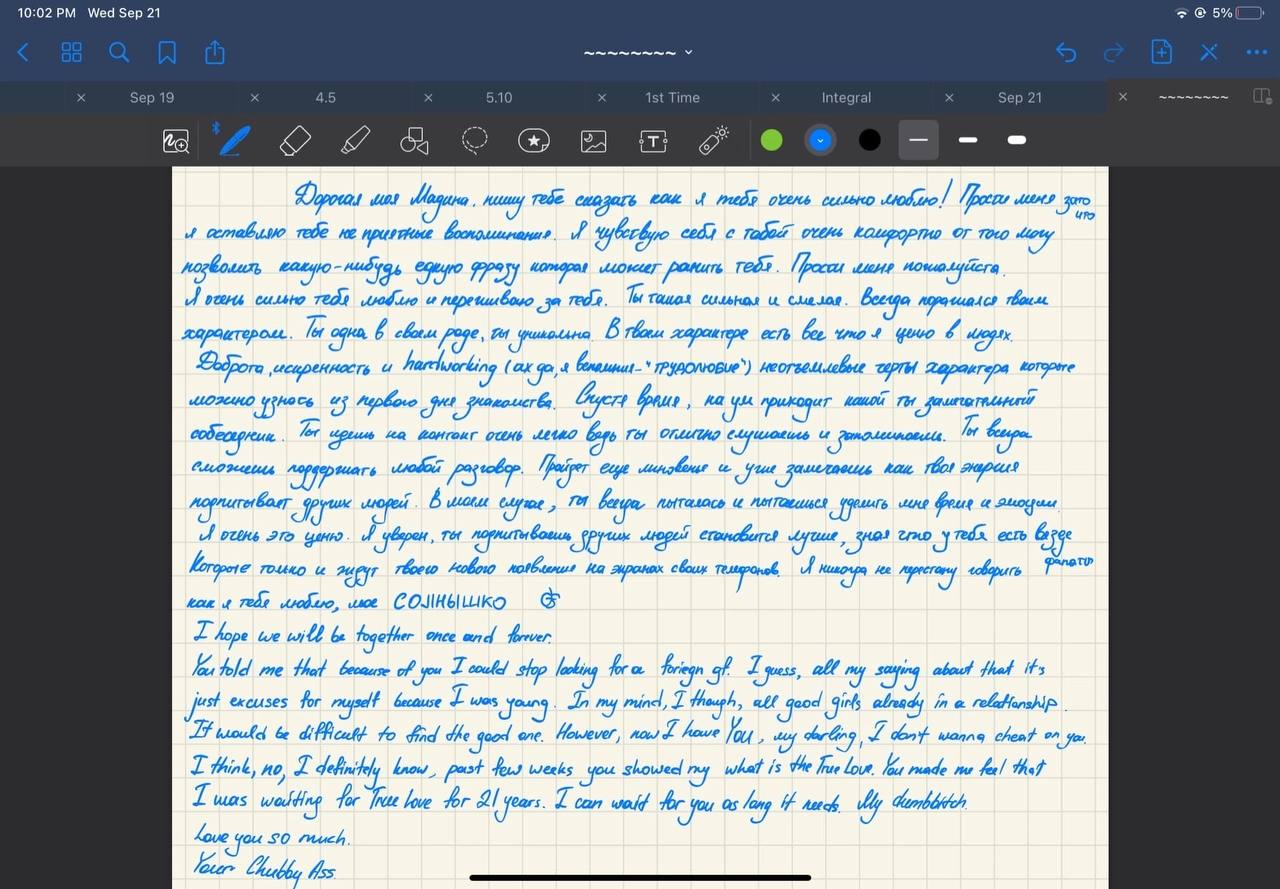 10:02 PM Wed Sep 21
5%
~~~~~~~~
Sep 19
4.5
5.10
1st Time
Integral
Sep 21
~~~~~~~~
Дорогая моя Мадина, пишу тебе сказать как я тебя очень сильно люблю! Прости меня зато что
я оставляю тебе не приятные воспоминания. Я чувствую себя с табой очень комфортно от того могу
позволить какую-нибудь едкую фразу которая может ранить тебя. Прости меня пожалуйста.
Я очень сильно тебя люблю и переживаю за тебя. Ты такая сильная и смелая. Всегда поражался твоим
характером. Ты одна в своем роде, ты уникальна. В твоем характере есть все что я ценю в людях.
Доброта, искренность и hardworking (ах да, я вспомнил- "ТРУДОЛЮБИЕ") неотъемлевые черты характера которые
можно узнать из первого дня знакомства. Спустя время, на ум приходит какой ты замечательный
собеседник. Ты идешь на контакт очень легко ведь ты отлично слушаешь и запоминаешь. Ты всегда
сможешь поддержать любой разговор. Пройдет еще мгновенье и уже замечаешь как твоя энергия
подпитывает других людей. В моем случае, ты всегда пыталась и пытаешься уделить мне время и эмоции.
Я очень это ценю. Я уверен, ты подпитываешь других людей становится лучше, зная что у тебя есть везде фанаты
Которые только и ждут твоего нового появление на экранах своих телефонов. Я никогда не перестану говорить
как я тебя люблю, мое СОЛНЫШКО
I hope we will be together once and forever.
You told me that because of you I could stop looking for a foriegn gf. I guess, all my saying about that it's
just excuses for myself because I was young. In my mind, I though, all good girls already in a relationship.
It would be difficult to find the good one. However, now I have You, my darling, I don't wanna cheat on you.
I think, no, I definitely know, past few weeks you showed my what is the True Love. You made me feel that
I was waiting for True Love for 21 years. I can wait for you as long it needs. My dumbbitch.
Love you so much.
Your Chubby Ass